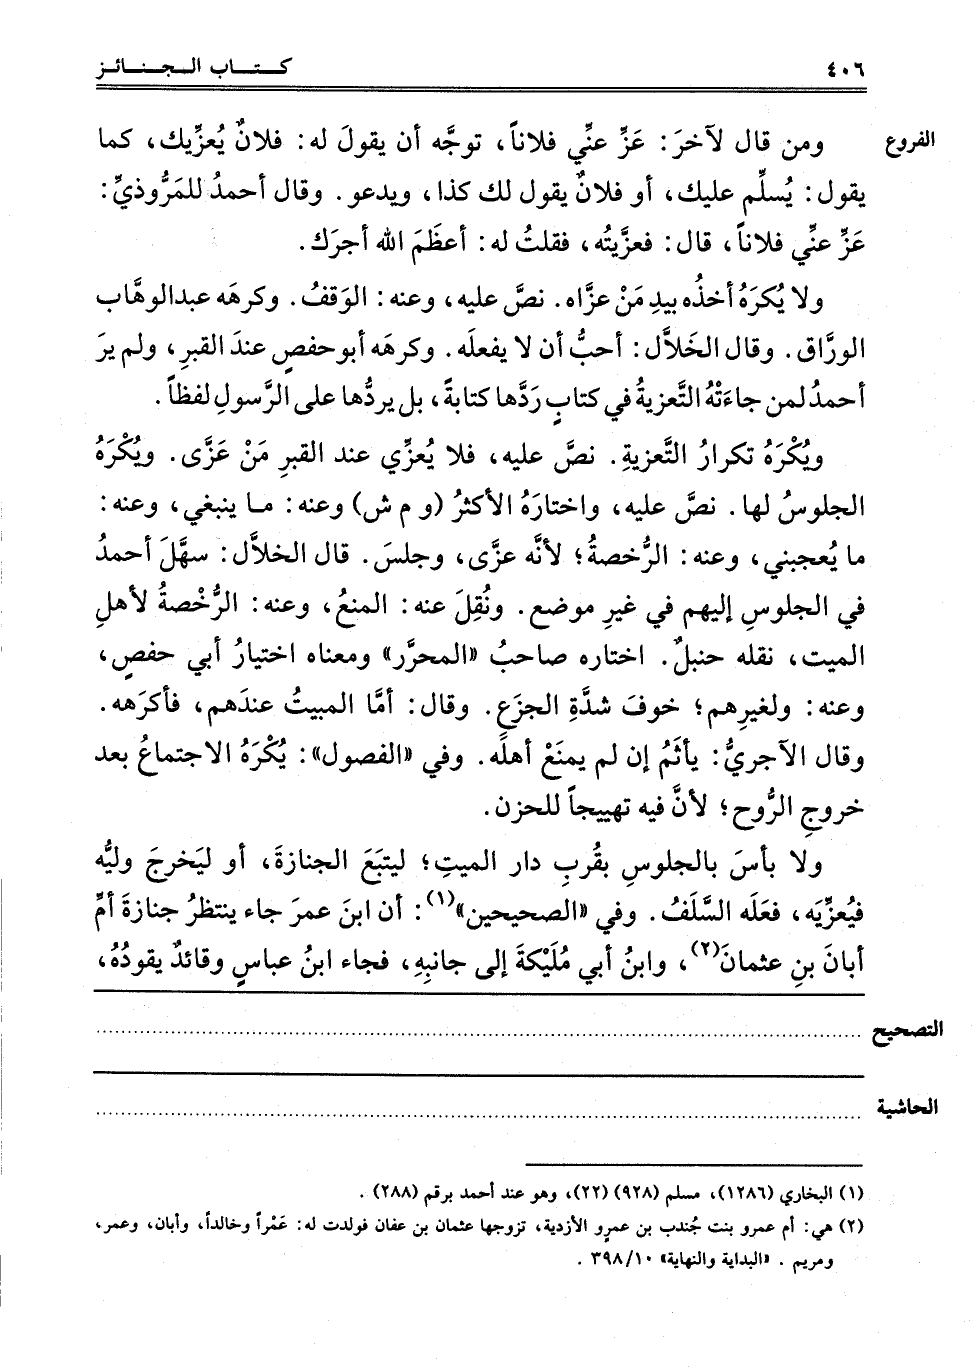 ٤٠٦ كـتـاب الـجـنـائـز
الفروع ومن قال لآخرَ: عَزِّ عنِّي فلاناً، توجَّه أن يقولَ له: فلانٌ يُعزِّيك، كما
يقول: يُسلِّم عليك، أو فلانٌ يقول لك كذا، ويدعو. وقال أحمدُ للمَرُّوذيِّ:
عَزِّ عنِّي فلاناً، قال: فعزَّيتُه، فقلتُ له: أعظَمَ الله أجرَك.
ولا يُكرَهُ أخذُه بيدِ مَنْ عزَّاه. نصَّ عليه، وعنه: الوَقفُ. وكرهَه عبدالوهَّاب
الورَّاق. وقال الخَلاَّل: أحبُّ أن لا يفعلَه. وكرهَه أبو حفصٍ عندَ القبرِ، ولم يرَ
أحمدُ لمن جاءَتْهُ التَّعزيةُ في كتابٍ رَدَّها كتابةً، بل يردُّها على الرَّسولِ لفظاً.
ويُكْرَهُ تكرارُ التَّعزيةِ. نصَّ عليه، فلا يُعزِّي عند القبرِ مَنْ عَزَّى. ويُكْرَهُ
الجلوسُ لها. نصَّ عليه، واختارَهُ الأكثرُ (و م ش) وعنه: مـا ينبغي، وعنه:
ما يُعجبني، وعنه: الرُّخصةُ؛ لأنَّه عزَّى، وجلسَ. قال الخلاَّل: سهَّلَ أحمدُ
في الجلوسِ إليهم في غيرِ موضع. ونُقِلَ عنه: المنعُ، وعنه: الرُّخْصةُ لأهلِ
الميت، نقله حنبلٌ. اختاره صاحبُ «المحرَّر» ومعناه اختيارُ أبي حفصٍ،
وعنه: ولغيرِهم؛ خوفَ شدَّةِ الجزَعِ. وقال: أمَّا المبيتُ عندَهم، فأكرَهه.
وقال الآجريُّ: يأثَمُ إن لم يمنَعْ أهلَه. وفي «الفصول»: يُكْرَهُ الاجتماعُ بعد
خروجِ الرُّوح؛ لأنَّ فيه تهييجاً للحزن.
ولا بأسَ بالجلوسِ بقُربِ دار الميتِ؛ ليتبَعَ الجنازةَ، أو ليَخرجَ وليُّه
فيُعزِّيَه، فعَلَه السَّلَفُ. وفي «الصحيحين»(١): أن ابنَ عمرَ جاء ينتظرُ جنازةَ أمِّ
أبانَ بنِ عثمانَ(٢)، وابنُ أبي مُلَيْكةَ إلى جانبِهِ، فجاء ابنُ عباسٍ وقائدٌ يقودُهُ،
التصحيح
الحاشية
(١) البخاري (١٢٨٦)، مسلم (٩٢٨) (٢٢)، وهو عند أحمد برقم (٢٨٨).
(٢) هي: أم عمرو بنت جُندب بن عمرو الأزدية، تزوجها عثمان بن عفان فولدت له: عَمْراً وخالداً، وأبان، وعمر،
ومريم. «البداية والنهاية» ٣٩٨/١٠.